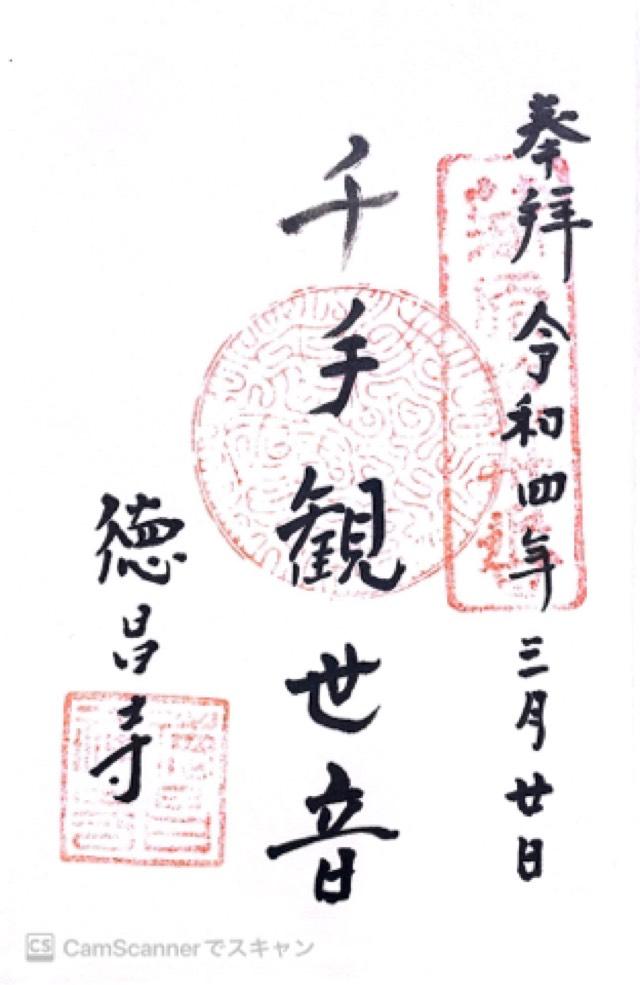 奉拝 令和四年三月廿日
千手観世音
徳昌寺
CS CamScannerでスキャン